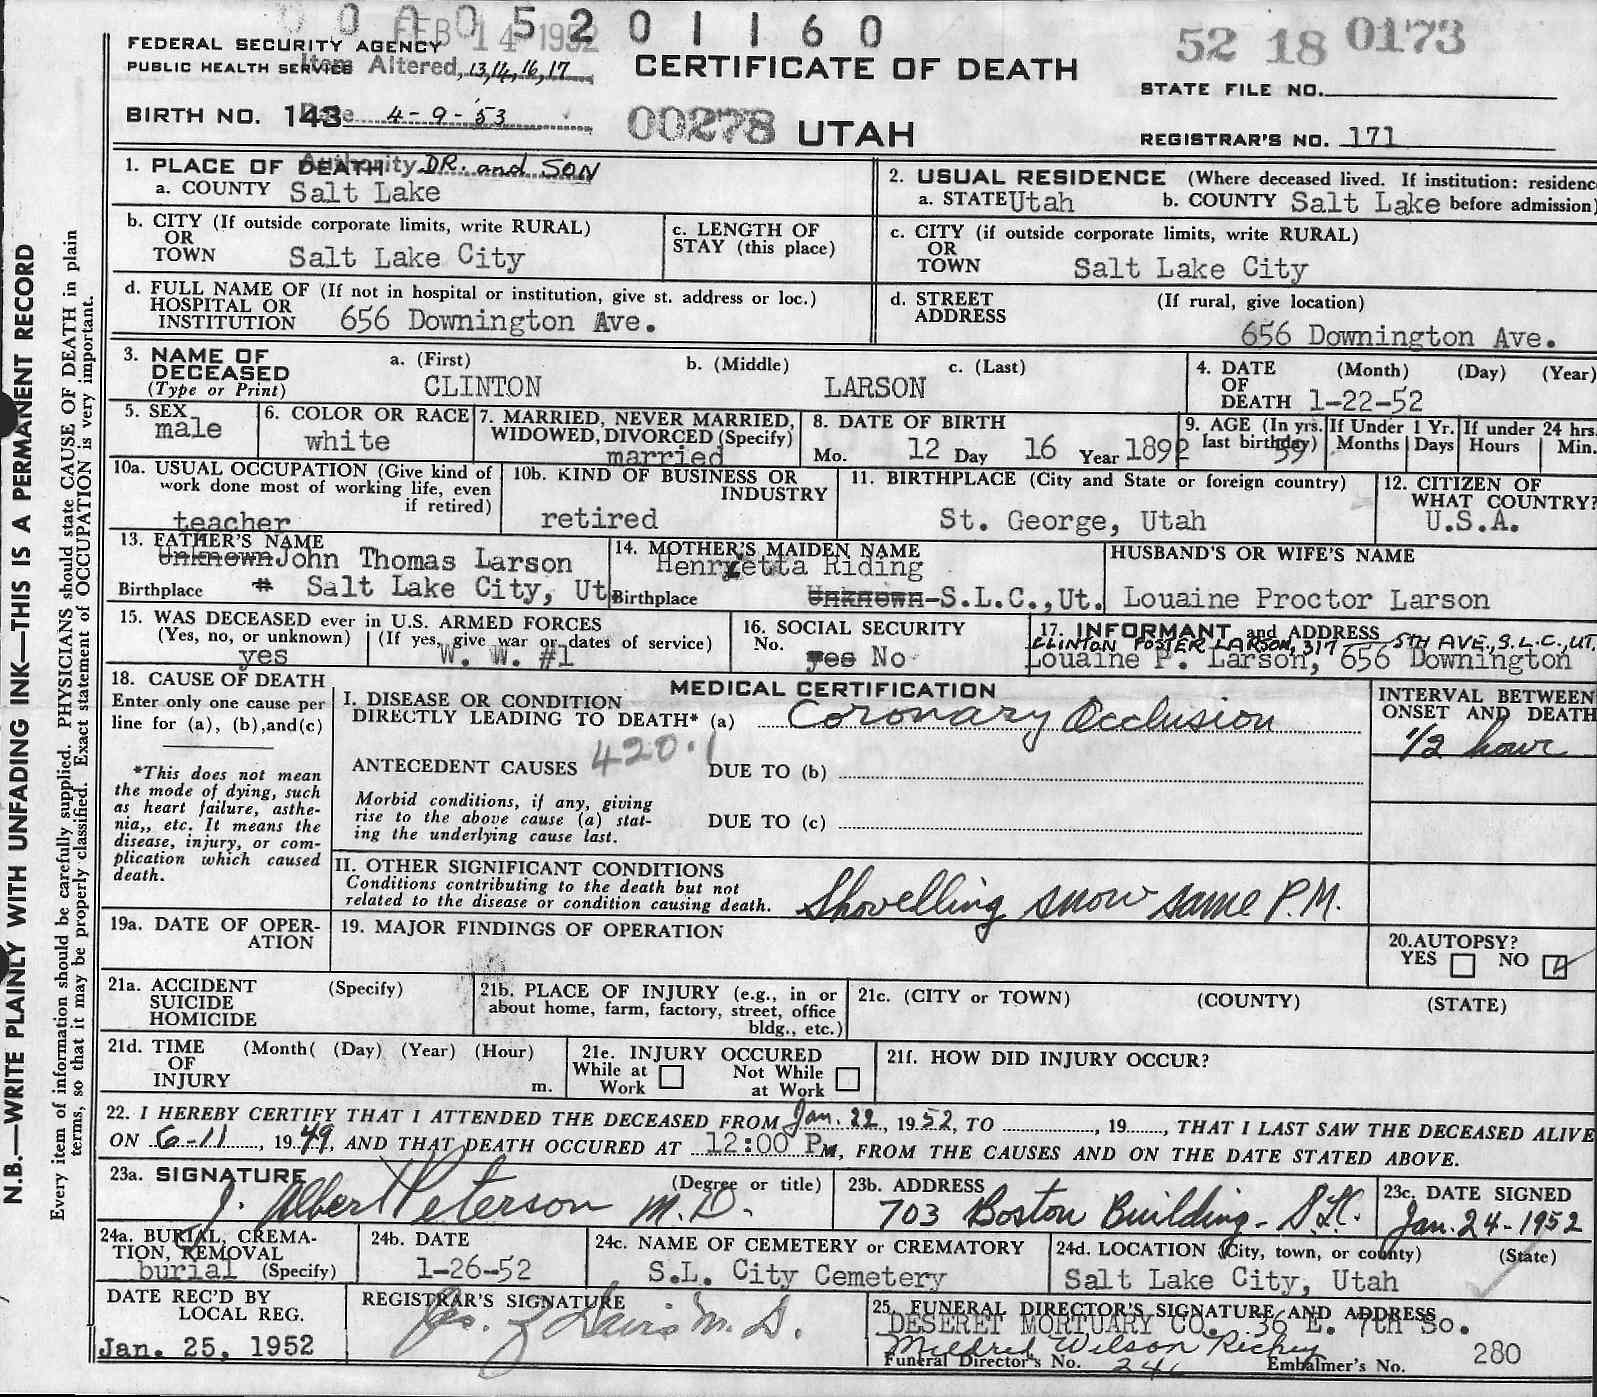 0 0 0 5 2 0 1 1 6 0
FEB 14 1952
52 18 0173
FEDERAL SECURITY AGENCY
PUBLIC HEALTH SERVICE
Item Altered, 13, 14, 16, 17
CERTIFICATE OF DEATH
STATE FILE NO.
BIRTH NO. 143
Date 4-9-'53
00278 UTAH
REGISTRAR'S NO. 171
Authority DR. and SON
1. PLACE OF DEATH
a. COUNTY Salt Lake
2. USUAL RESIDENCE (Where deceased lived. If institution: residenc
a. STATE Utah b. COUNTY Salt Lake before admission)
b. CITY (If outside corporate limits, write RURAL)
OR
TOWN Salt Lake City
c. LENGTH OF
STAY (this place)
c. CITY (if outside corporate limits, write RURAL)
OR
TOWN Salt Lake City
d. FULL NAME OF (If not in hospital or institution, give st. address or loc.)
HOSPITAL OR
INSTITUTION 656 Downington Ave.
d. STREET (If rural, give location)
ADDRESS
656 Downington Ave.
3. NAME OF
DECEASED
(Type or Print)
a. (First) b. (Middle) c. (Last)
CLINTON LARSON
4. DATE (Month) (Day) (Year)
OF
DEATH 1-22-52
5. SEX
male
6. COLOR OR RACE
white
7. MARRIED, NEVER MARRIED,
WIDOWED, DIVORCED (Specify)
married
8. DATE OF BIRTH
Mo. 12 Day 16 Year 1892
9. AGE (In yrs.
last birthday)
59
If Under 1 Yr.
Months Days
If under 24 hrs.
Hours Min.
10a. USUAL OCCUPATION (Give kind of
work done most of working life, even
if retired)
teacher
10b. KIND OF BUSINESS OR
INDUSTRY
retired
11. BIRTHPLACE (City and State or foreign country)
St. George, Utah
12. CITIZEN OF
WHAT COUNTRY?
U.S.A.
13. FATHER'S NAME
Unknown John Thomas Larson
Birthplace Salt Lake City, Ut
14. MOTHER'S MAIDEN NAME
Henrietta Riding
Birthplace Unknown-S.L.C., Ut.
HUSBAND'S OR WIFE'S NAME
Louaine Proctor Larson
15. WAS DECEASED ever in U.S. ARMED FORCES
(Yes, no, or unknown) (If yes, give war or dates of service)
yes W. W. #1
16. SOCIAL SECURITY
No. yes No
17. INFORMANT and ADDRESS
CLINTON FOSTER LARSON, 317 - 5TH AVE., S.L.C., UT.
Louaine P. Larson, 656 Downington
18. CAUSE OF DEATH
Enter only one cause per
line for (a), (b), and (c)
*This does not mean
the mode of dying, such
as heart failure, asthe-
nia,, etc. It means the
disease, injury, or com-
plication which caused
death.
MEDICAL CERTIFICATION
I. DISEASE OR CONDITION
DIRECTLY LEADING TO DEATH* (a) Coronary Occlusion
420.1
ANTECEDENT CAUSES DUE TO (b)
Morbid conditions, if any, giving
rise to the above cause (a) stat-
ing the underlying cause last.
DUE TO (c)
INTERVAL BETWEEN
ONSET AND DEATH
1/2 hour
II. OTHER SIGNIFICANT CONDITIONS
Conditions contributing to the death but not
related to the disease or condition causing death.
Shovelling snow same P.M.
19a. DATE OF OPER-
ATION
19. MAJOR FINDINGS OF OPERATION
20. AUTOPSY?
YES NO
21a. ACCIDENT (Specify)
SUICIDE
HOMICIDE
21b. PLACE OF INJURY (e.g., in or
about home, farm, factory, street, office
bldg., etc.)
21c. (CITY or TOWN) (COUNTY) (STATE)
21d. TIME (Month( (Day) (Year) (Hour)
OF
INJURY m.
21e. INJURY OCCURED
While at Work
Not While at Work
21f. HOW DID INJURY OCCUR?
22. I HEREBY CERTIFY THAT I ATTENDED THE DECEASED FROM Jan. 22, 1952, TO ............, 19......, THAT I LAST SAW THE DECEASED ALIVE
ON 6-11, 1949, AND THAT DEATH OCCURED AT 12:00 PM, FROM THE CAUSES AND ON THE DATE STATED ABOVE.
23a. SIGNATURE (Degree or title)
J. Albert Peterson M.D.
23b. ADDRESS
703 Boston Building - S.L.C.
23c. DATE SIGNED
Jan. 24-1952
24a. BURIAL, CREMA-
TION, REMOVAL
burial (Specify)
24b. DATE
1-26-52
24c. NAME OF CEMETERY or CREMATORY
S.L. City Cemetery
24d. LOCATION (City, town, or county) (State)
Salt Lake City, Utah
DATE REC'D BY
LOCAL REG.
Jan. 25, 1952
REGISTRAR'S SIGNATURE
Davis M. D.
25. FUNERAL DIRECTOR'S SIGNATURE AND ADDRESS
DESERET MORTUARY CO. 36 E. 7th So.
Mildred Wilson Richey
Funeral Director's No. Embalmer's No. 280
N.B.—WRITE PLAINLY WITH UNFADING INK—THIS IS A PERMANENT RECORD
Every item of information should be carefully supplied. PHYSICIANS should state CAUSE OF DEATH in plain
terms, so that it may be properly classified. Exact statement of OCCUPATION is very important.